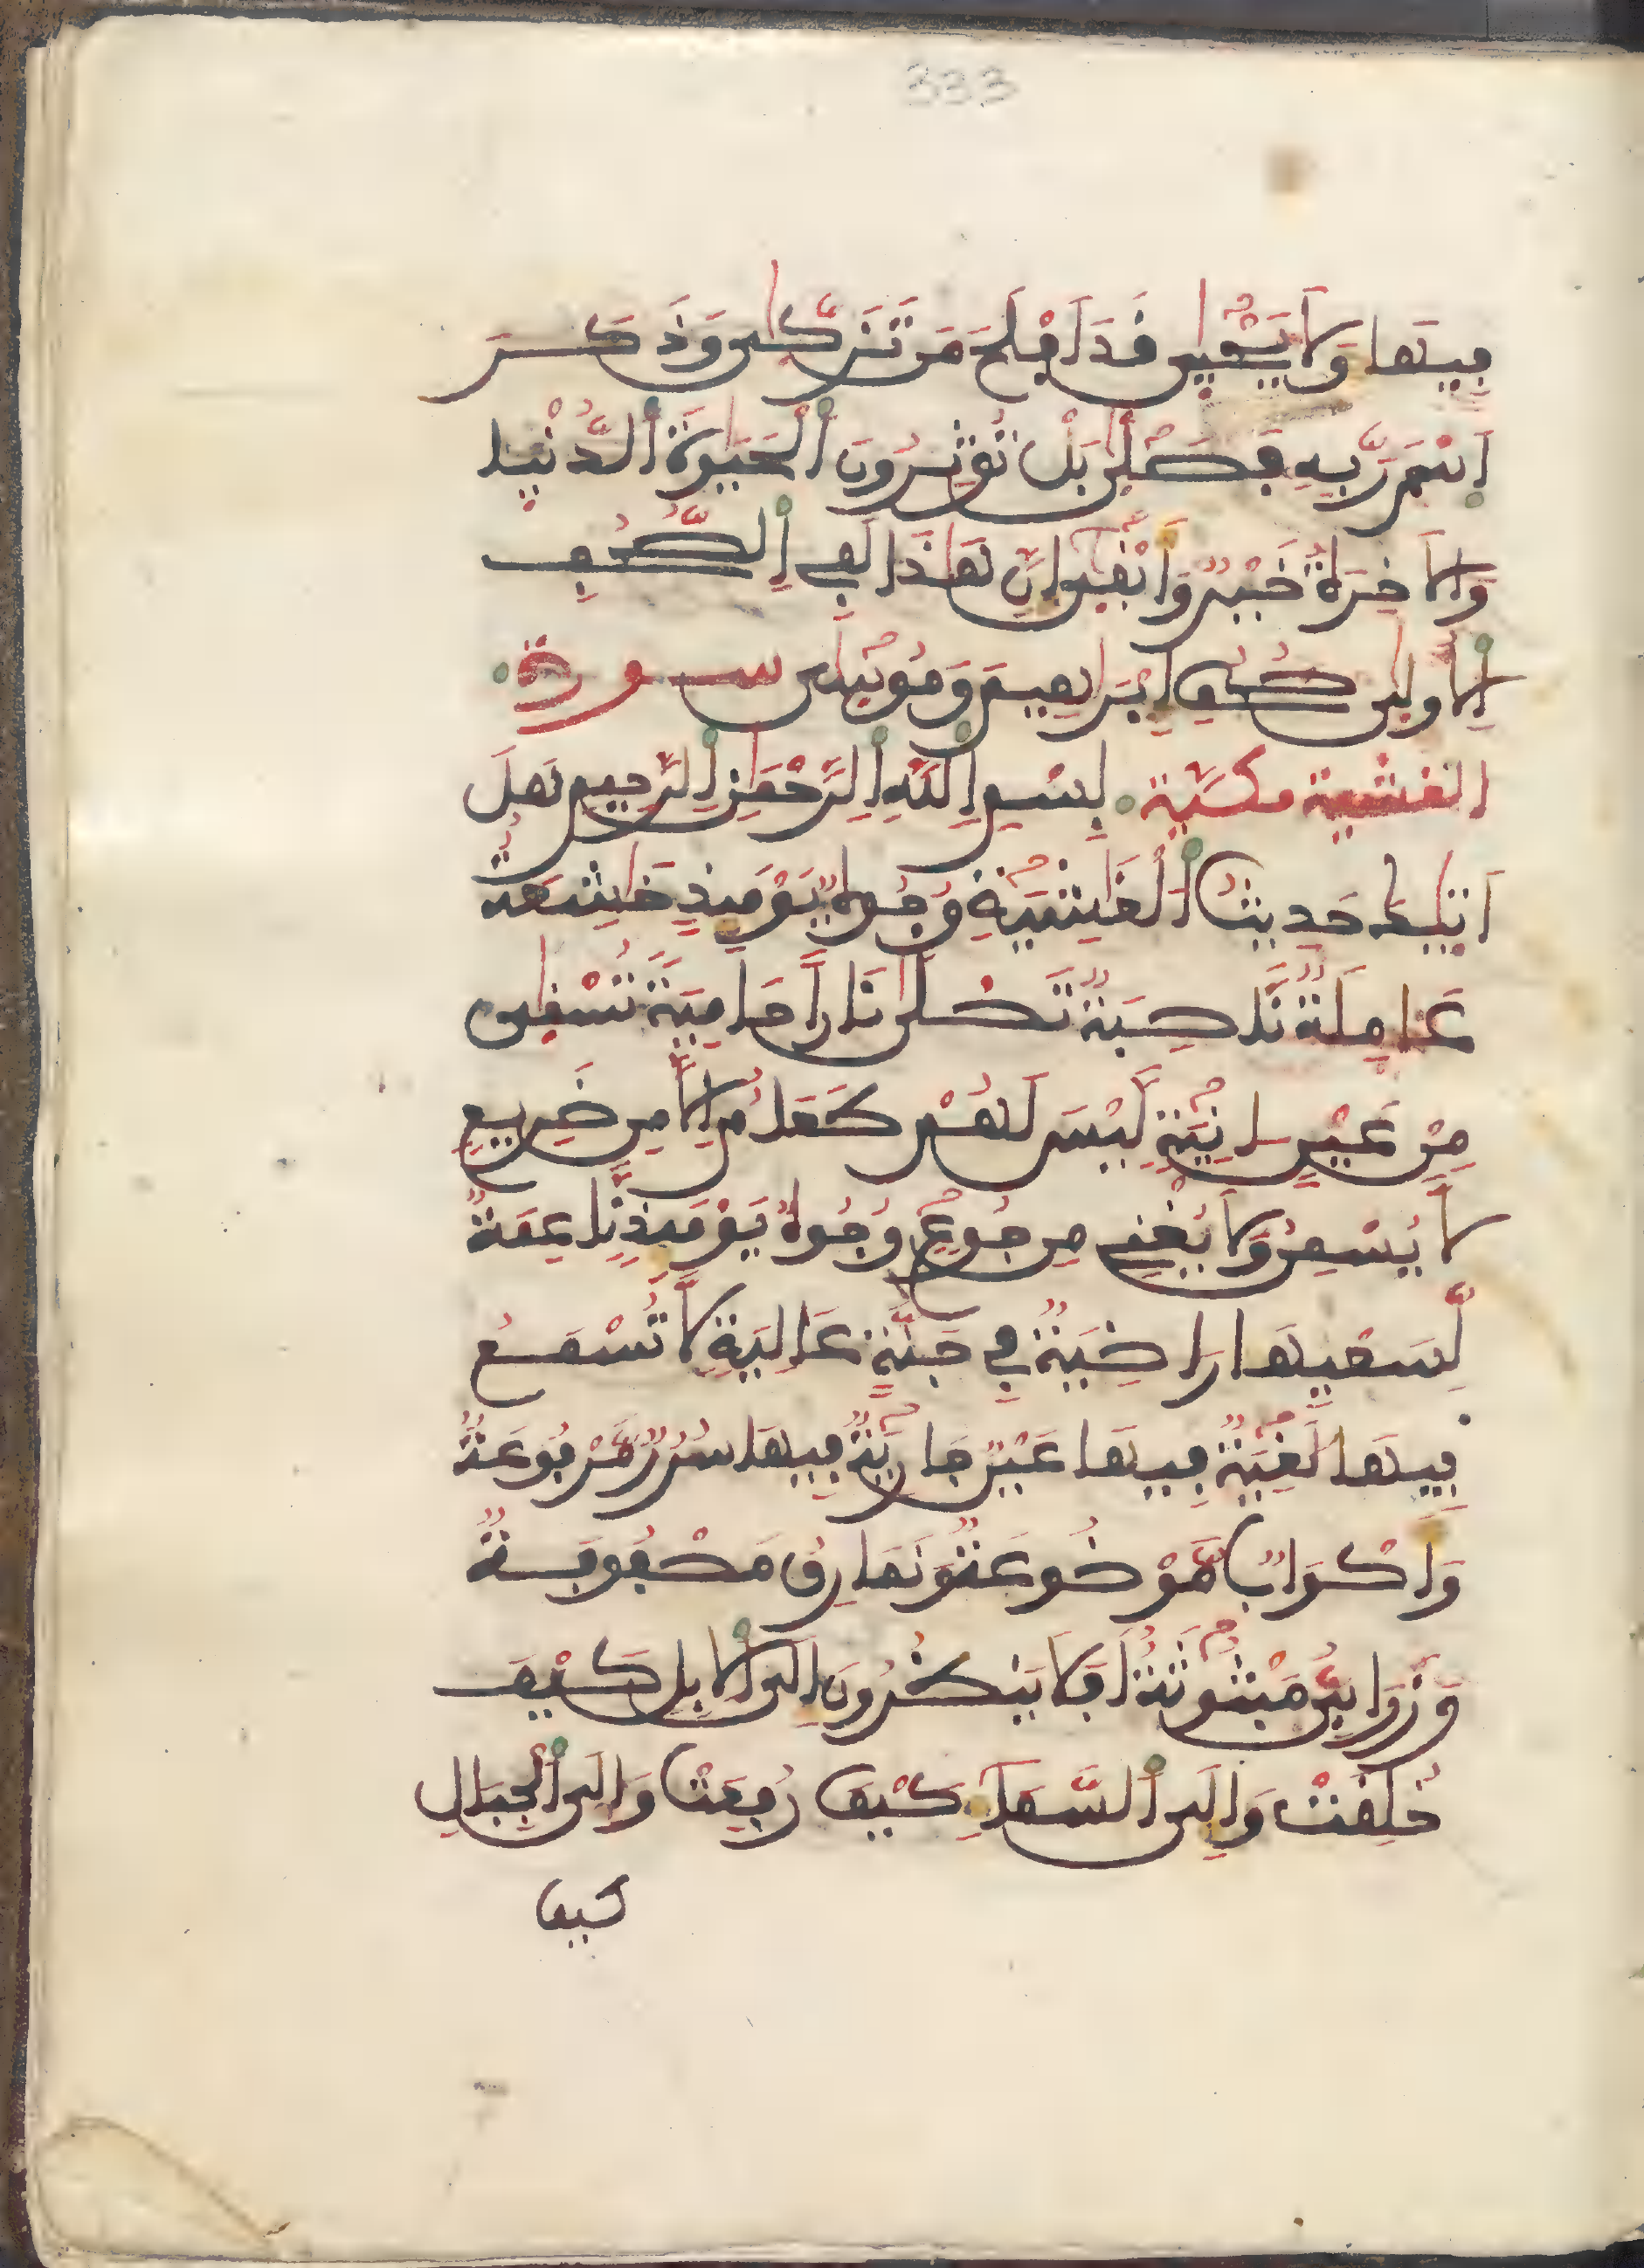 333
فيها ولا يحيى قد افلح من تزكى وذكر
اسم ربه فصلى بل تؤثرون الحيوة الدنيا
والاخرة خير وابقى ان هذا لفي الصحف
الاولى صحف ابراهيم وموسى سورة
الغشية مكية بسم الله الرحمن الرحيم هل
اتيك حديث الغشية وجوه يومئذ خشعة
عاملة ناصبة تصلى نارا حامية تسقى
من عين انية ليس لهم طعام الا من ضريع
لا يسمن ولا يغني من جوع وجوه يومئذ ناعمة
لسعيها راضية في جنة عالية لا تسمع
فيها لغية فيها عين جارية فيها سرر مرفوعة
واكواب موضوعة ونمارق مصفوفة
وزرابي مبثوثة افلا ينظرون الى الابل كيف
خلقت والى السماء كيف رفعت والى الجبال
كيف